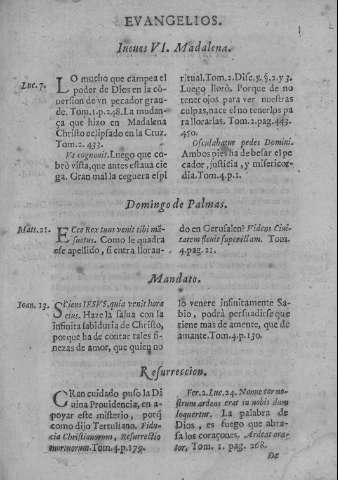 EVANGELIOS.
Iueues VI. Madalena.
Luc. 7.
LO mucho que campea el
poder de Dios en la cō
uersion de vn pecador gran-
de. Tom.1.p.248. La mudan-
ça que hizo en Madalena
Christo eclipsado en la Cruz.
Tom. 2. 433.
Vt cognouit. Luego que co-
brò vista, que antes estaua cie
ga. Gran mal la ceguera espi
ritual. Tom.2. Disc.5.§.2.y 3.
Luego llorò. Porque de no
tener ojos para ver nuestras
culpas, nace el no tenerlos pa
ra llorarlas. Tom. 2. pag.443.
450.
Osculabatur pedes Domini.
Ambos pies ha de besar el pe
cador, justicia, y misericor-
dia. Tom.4.p.1.
Domingo de Palmas.
Matt.21.
ECce Rex tuus venit tibi mā-
suetus. Como le quadra
ese apellido, si entra lloran-
do en Gerusalen? Videns Ciui-
tatem fleuit super illam. Tom.
4.pag.21.
Mandato.
Ioan. 13.
SCiens IESVS, quia venit hora
eius. Haze la salua con la
infinita sabiduria de Christo,
porque ha de contar tales fi-
nezas de amor, que quien no
lo venere infinitamente Sa-
bio, podrà persuadirse que
tiene mas de amente, que de
amante. Tom.4.p.130.
Resurreccion.
GRan cuidado puso la Di
uina Prouidencia, en a-
poyar este misterio, porq̄
como dijo Tertuliano. Fidu-
cia Christianorum, Resurrectio
mortuorum. Tom.4.p.179.
Ver.2. Luc.24. Nonne cor no-
strum ardens erat in nobis dum
loqueretur. La palabra de
Dios, es fuego que abra-
sa los coraçones. Ardeat ora-
tor, Tom. 1. pag. 268.
De